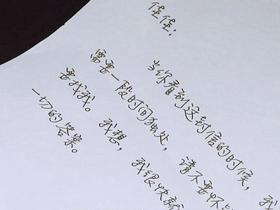 佳佳：
当你看到这封信的时候，我
需要一段时间独处，请不要怀
要找我。我想，我很快就
一切的答案。